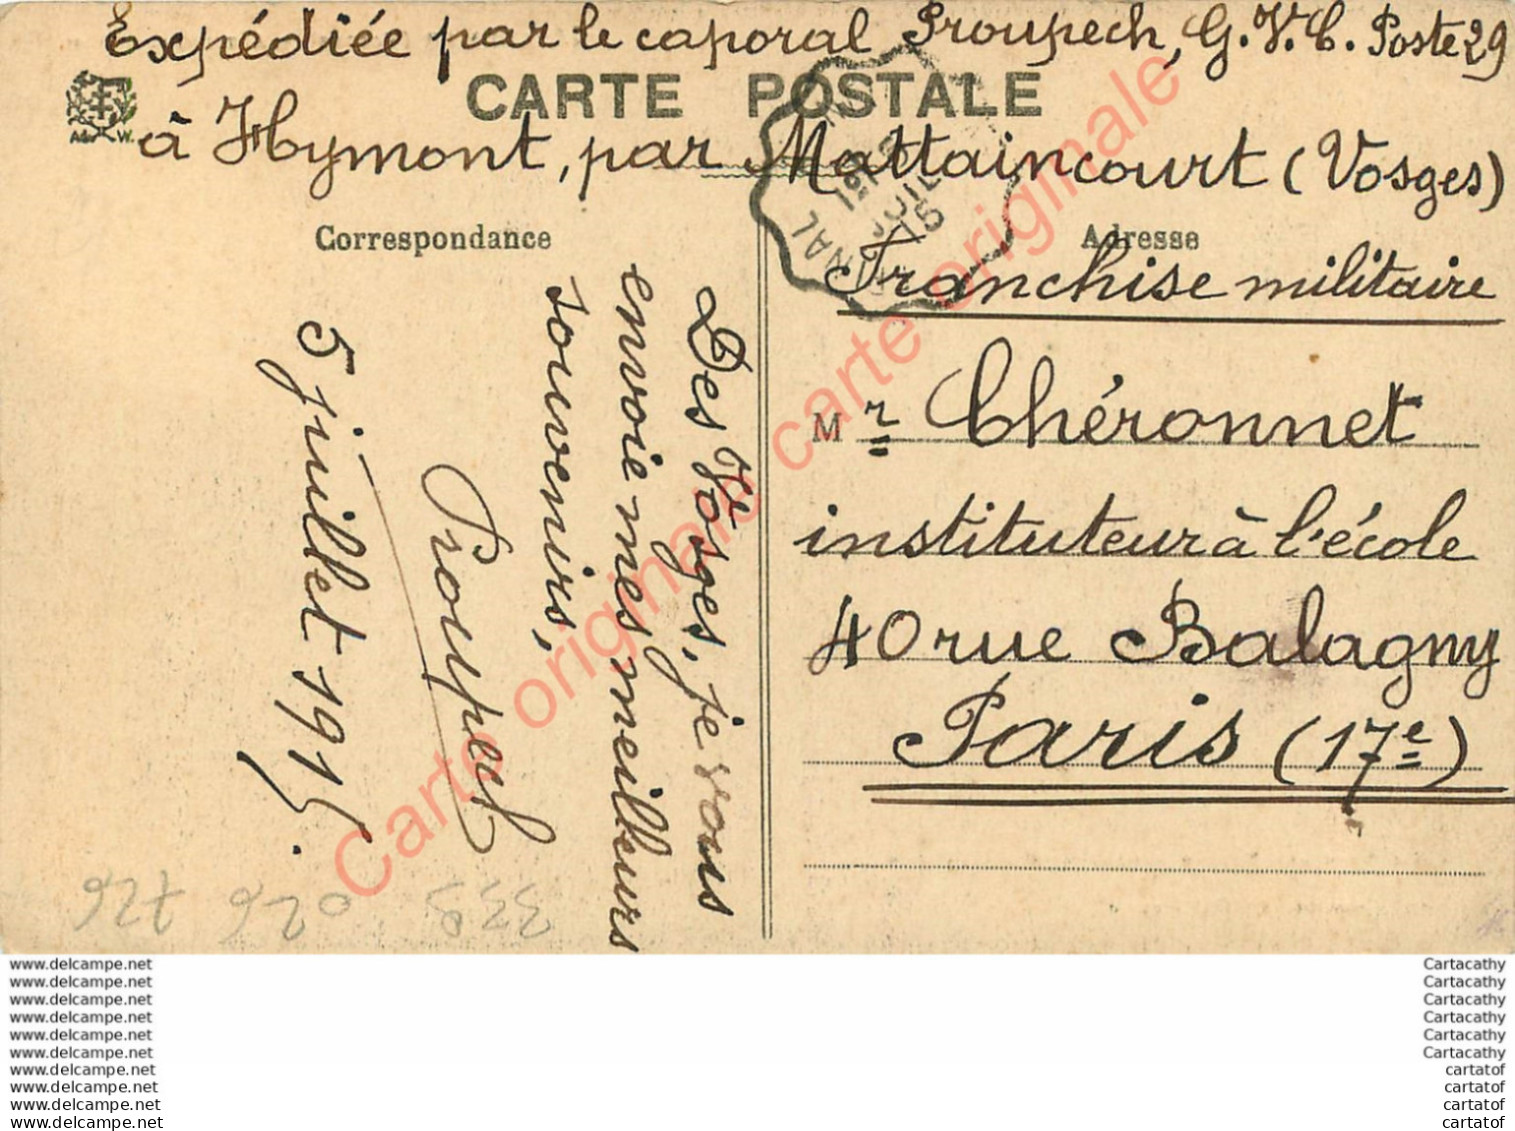 Expédiée par le caporal Proupech, G.V.C. Poste 29
CARTE POSTALE
à Hymont, par Mattaincourt (Vosges)
Correspondance
Adresse
Franchise militaire
Mr Chéronnet
instituteur à l'école
40 rue Balagny
Paris (17e)
Des Vosges, je vous
envoie mes meilleurs
souvenirs,
Proupech
5 juillet 1915.
Carte originale carte originale
www.delcampe.net
www.delcampe.net
www.delcampe.net
www.delcampe.net
www.delcampe.net
www.delcampe.net
www.delcampe.net
www.delcampe.net
www.delcampe.net
www.delcampe.net
Cartacathy
Cartacathy
Cartacathy
Cartacathy
Cartacathy
Cartacathy
cartatof
cartatof
cartatof
cartatof